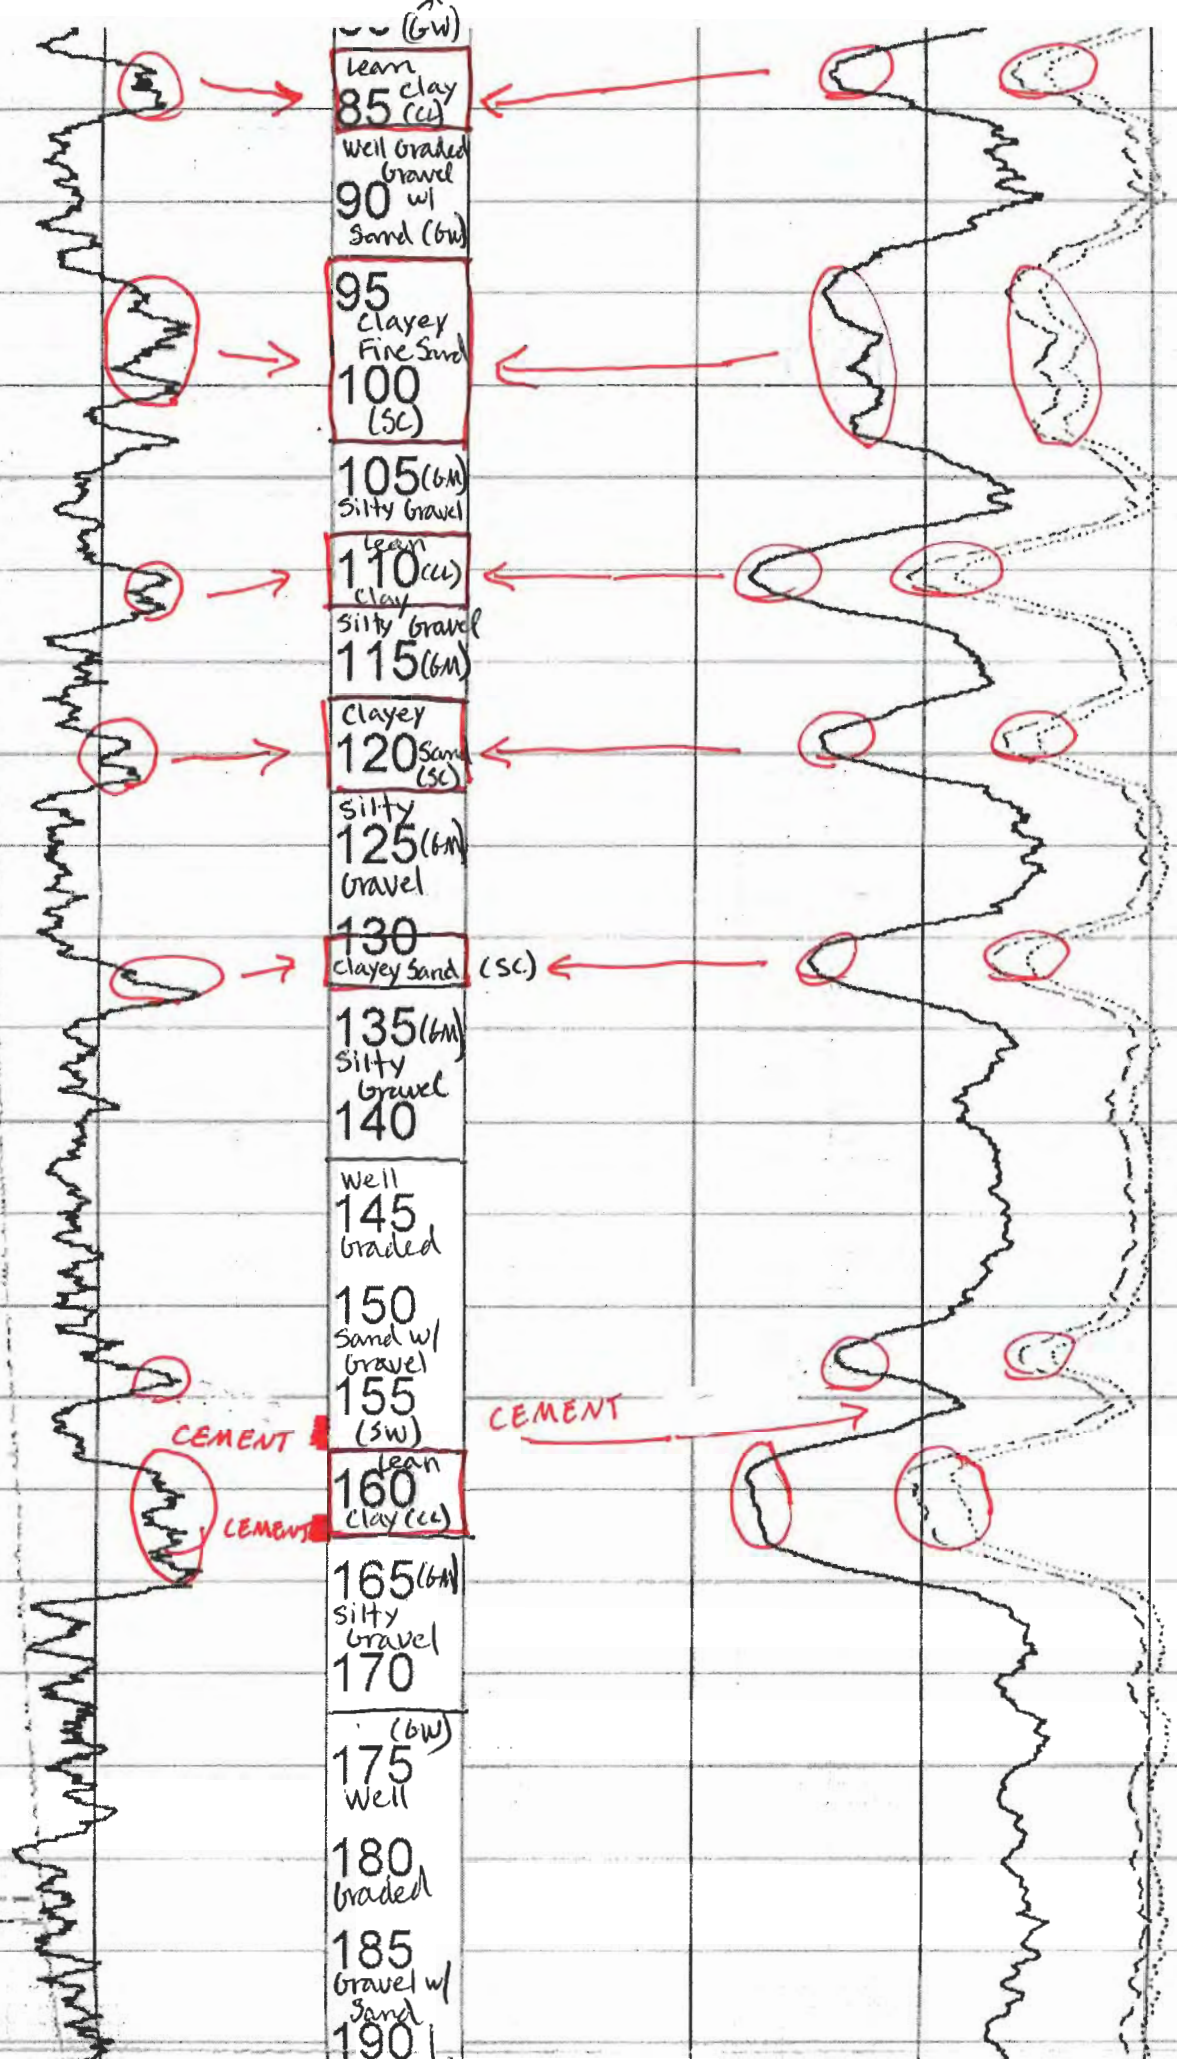 (GW)
Lean
clay
85 (CL)
Well Graded
Gravel
90 w/
Sand (GW)
95
Clayey
Fine Sand
100
(SC)
105 (GM)
Silty Gravel
Lean
110 (CL)
Clay
Silty Gravel
115 (GM)
Clayey
120 Sand
(SC)
Silty
125 (GM)
Gravel
130
Clayey Sand (SC)
135 (GM)
Silty
Gravel
140
Well
145
Graded
150
Sand w/
Gravel
155
CEMENT
(SW)
CEMENT
Lean
160
Clay (CL)
CEMENT
165 (GM)
Silty
Gravel
170
(GW)
175
Well
180
Graded
185
Gravel w/
Sand
190